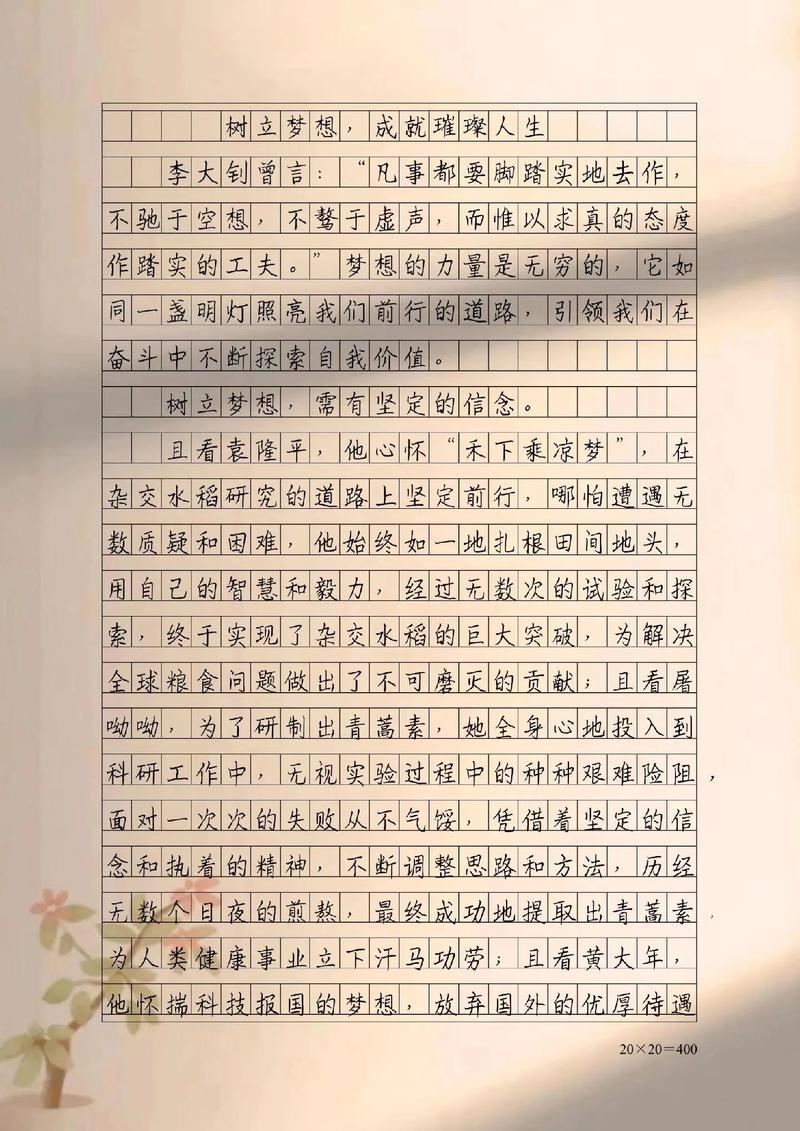 树立梦想，成就璀璨人生
李大钊曾言：“凡事都要脚踏实地去作，
不驰于空想，不骛于虚声，而惟以求真的态度
作踏实的工夫。”梦想的力量是无穷的，它如
同一盏明灯照亮我们前行的道路，引领我们在
奋斗中不断探索自我价值。
树立梦想，需有坚定的信念。
且看袁隆平，他心怀“禾下乘凉梦”，在
杂交水稻研究的道路上坚定前行，哪怕遭遇无
数质疑和困难，他始终如一地扎根田间地头，
用自己的智慧和毅力，经过无数次的试验和探
索，终于实现了杂交水稻的巨大突破，为解决
全球粮食问题做出了不可磨灭的贡献；且看屠
呦呦，为了研制出青蒿素，她全身心地投入到
科研工作中，无视实验过程中的种种艰难险阻，
面对一次次的失败从不气馁，凭借着坚定的信
念和执着的精神，不断调整思路和方法，历经
无数个日夜的煎熬，最终成功地提取出青蒿素，
为人类健康事业立下汗马功劳；且看黄大年，
他怀揣科技报国的梦想，放弃国外的优厚待遇
20×20=400